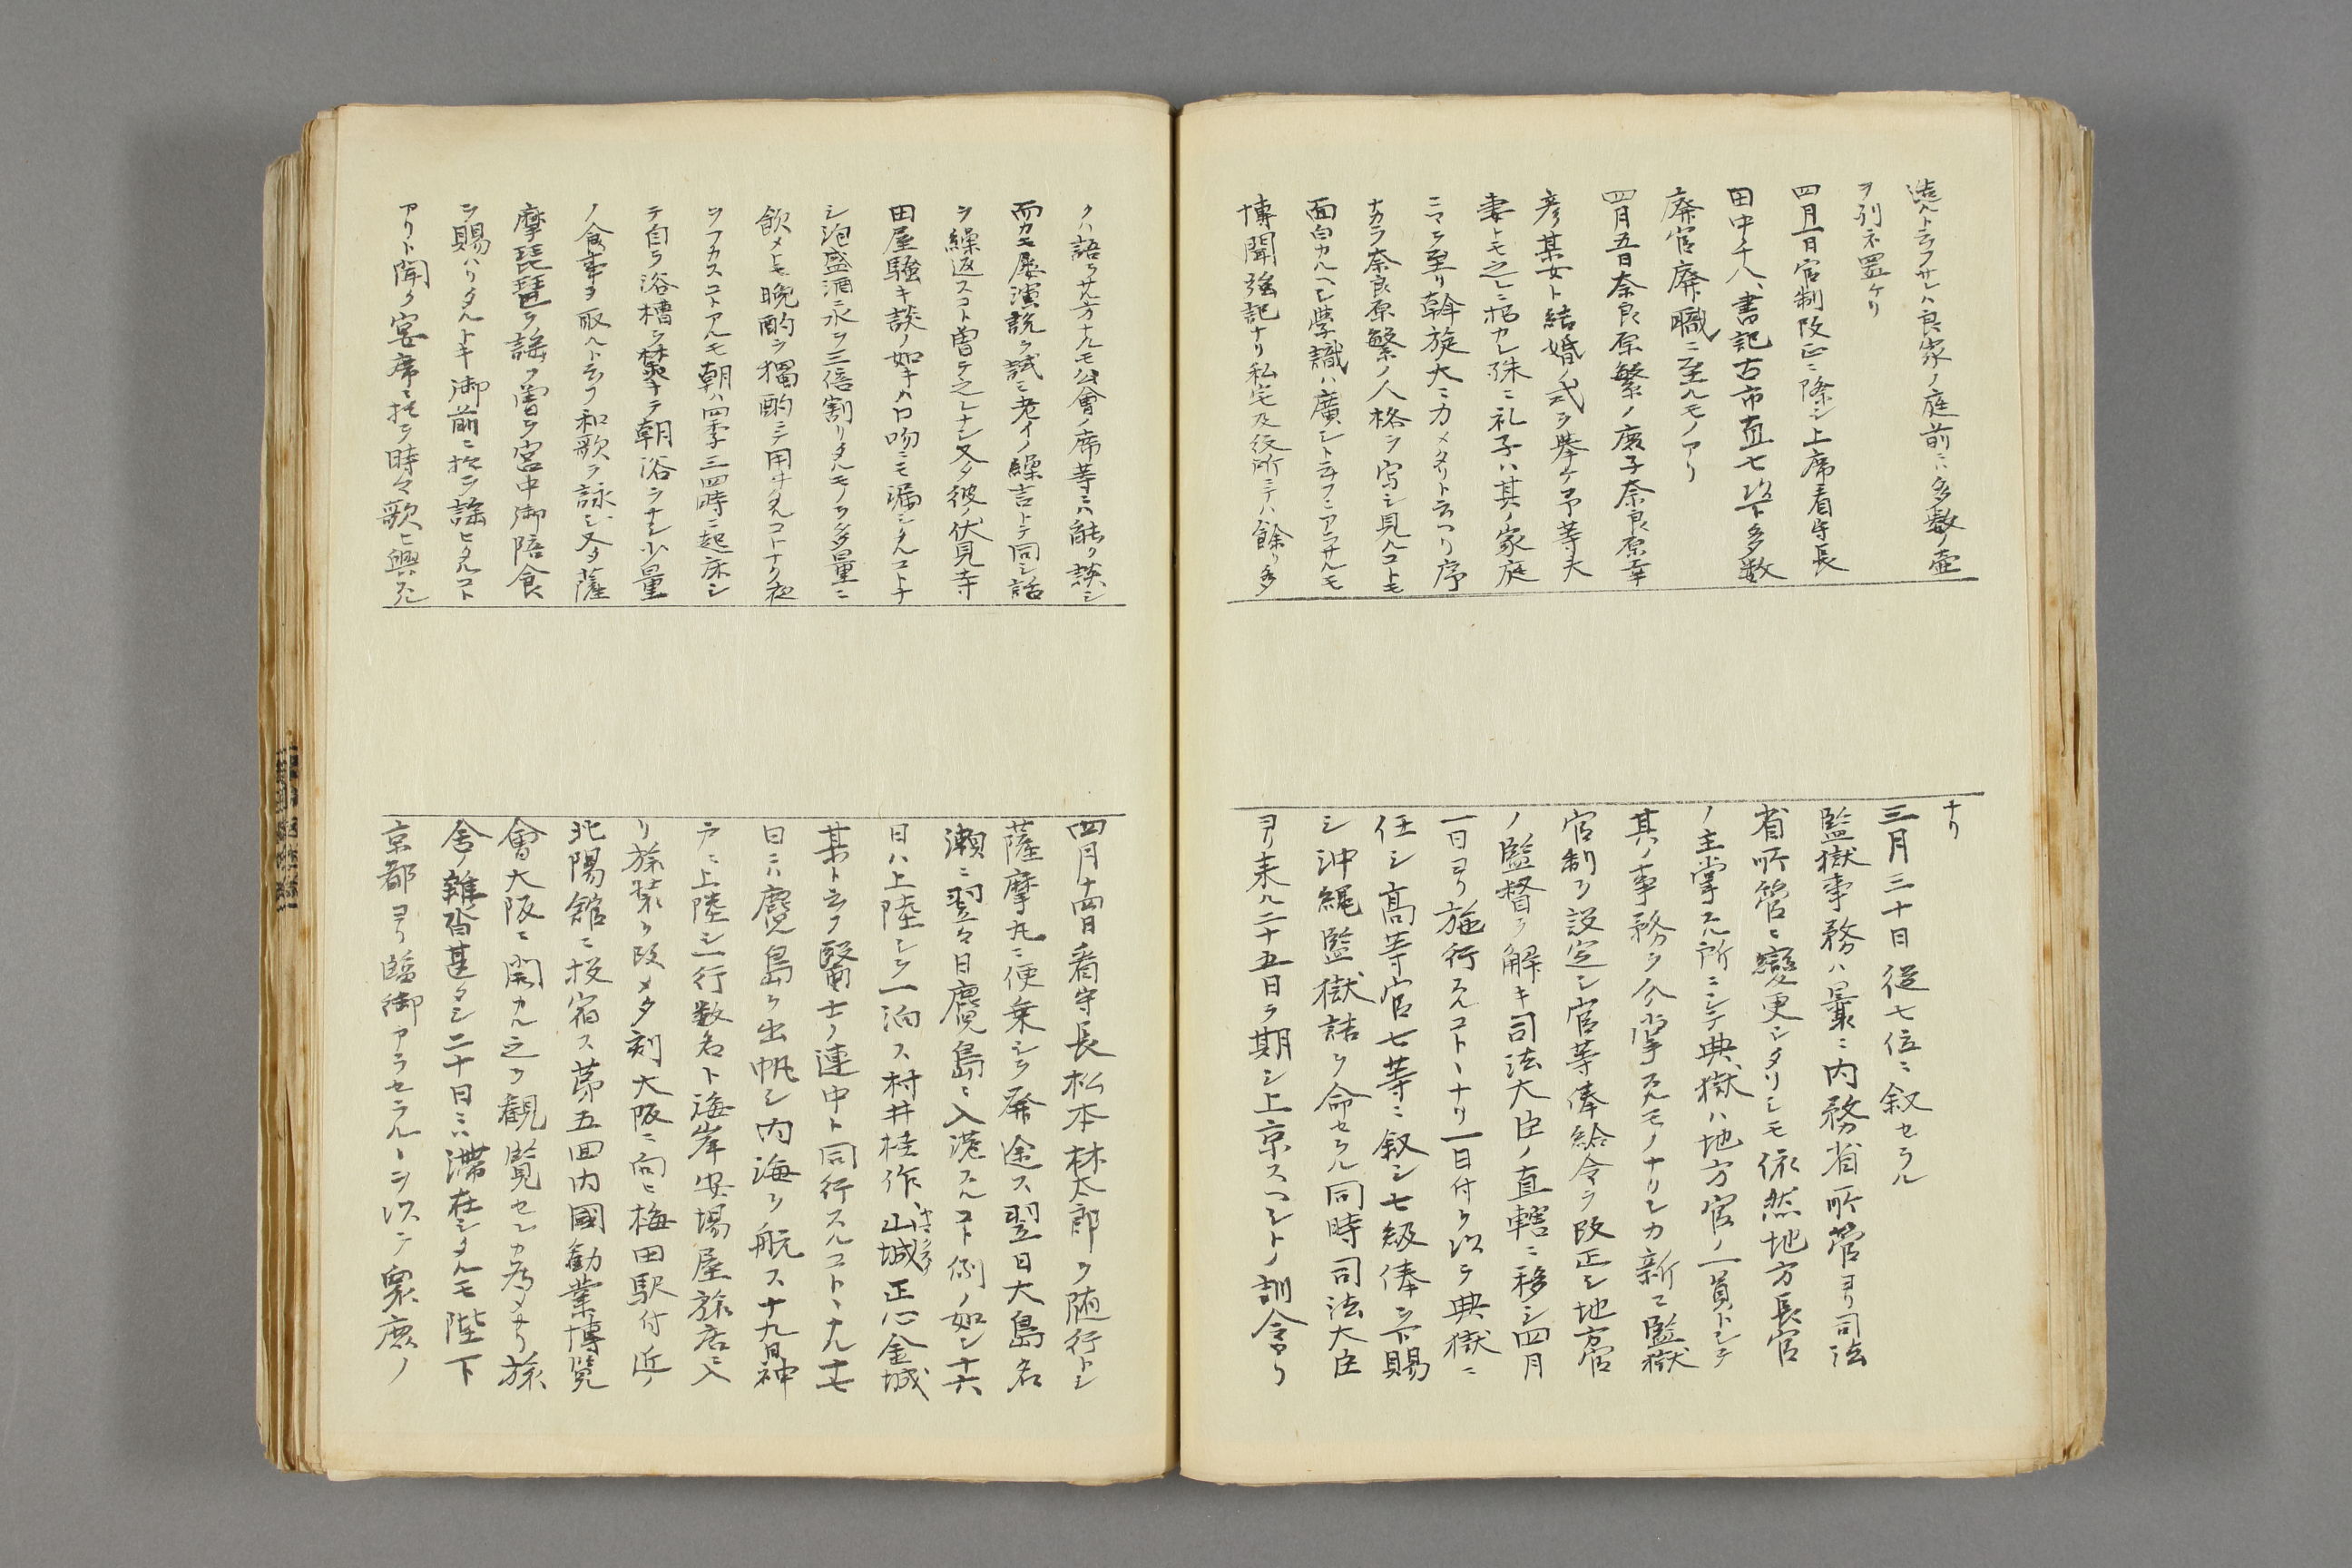 遶ヘト云フサレハ良家ノ庭前ニハ多数ノ壷
ヲ列ネ置ケリ
四月一日官制改正ニ際シ上席看守長
田中千八、書記古市直七以下多数
廃官廃職ニ至ルモノアリ
四月五日奈良原繁ノ庶子奈良原幸
彦某女ト結婚ノ式ヲ挙ケ予等夫
妻トモ之レニ招カレ殊ニ礼子ハ其ノ家庭
ニマテ至リ斡旋大ニカメタリト云ヘリ序
ナカラ奈良原繁ノ人格ヲ写シ見ルコトモ
面白カルヘシ学識ハ廣シト云フニアラサルモ
博聞強記ナリ私宅及役所ニテハ餘リ多
ナリ
三月三十日従七位ニ叙セラル
監獄事務ハ曩ニ内務省所管ヨリ司法
省所管ニ變更シタリシモ依然地方長官
ノ主掌スル所ニシテ典獄ハ地方官ノ一員トシテ
其ノ事務ヲ分掌スルモノナリシカ新ニ監獄
官制ヲ設定シ官等俸給令ヲ改正シ地方官
ノ監督ヲ解キ司法大臣ノ直轄ニ移シ四月
一日ヨリ施行スルコトヽナリ一日付ヲ以テ典獄ニ
任シ高等官七等ニ叙シ七級俸ヲ下賜
シ沖縄監獄詰ヲ命セラル同時司法大臣
ヨリ来ル二十五日ヲ期シ上京スヘシトノ訓令アリ
クハ語ラサル方ナルモ公會ノ席等ニハ能ク談シ
而カモ屡演説ヲ試ミ老イノ繰言トテ同シ話
ヲ繰返スコト曽テ之レナシ又タ彼ノ伏見寺
田屋騒キ談ノ如キハ口吻ニモ漏シタルコトナ
シ泡盛酒ニ水ヲ三倍割リタルモノヲ多量ニ
飲メトモ晩酌ヲ獨酌ニテ用ヰタルコトナク夜
ヲフカスコトアルモ朝ハ四季三四時ニ起床シ
テ自ラ浴槽ヲ焚キテ朝浴ヲナシ少量
ノ食事ヲ取ルト云フ和歌ヲ詠シ又タ薩
摩琵琶ヲ謡フ曽テ宮中御陪食
ヲ賜ハリタルトキ御前ニ於テ謡ヒタルコト
アリト聞ク宴席ニ於テ時々歌ヒ興スル
四月十四日看守長松本林太郎ヲ随行トシ
薩摩丸ニ便乗シテ発途ス翌日大島名
瀬ニ翌々日鹿児島ニ入港スルコト例ノ如シ十六
日ハ上陸シテ一泊ス村井桂作、山城正心金城
某ト云フ醫士ノ連中ト同行スルコトヽナル十七
日ニハ鹿児島ヲ出帆シ内海ヲ航ス十九日神
戸ニ上陸シ一行数名ト海岸安場屋旅店ニ入
リ旅装ヲ改メタ刻大阪ニ向ヒ梅田駅付近ノ
北陽館ニ投宿ス第五回内國勧業博覧
會大阪ニ開カル之ヲ観覧センカ為メナリ旅
舎ノ雑沓甚タシ二十日ニハ滞在シタルモ陛下
京都ヨリ臨御アラセラルヽヲ以テ衆庶ノ